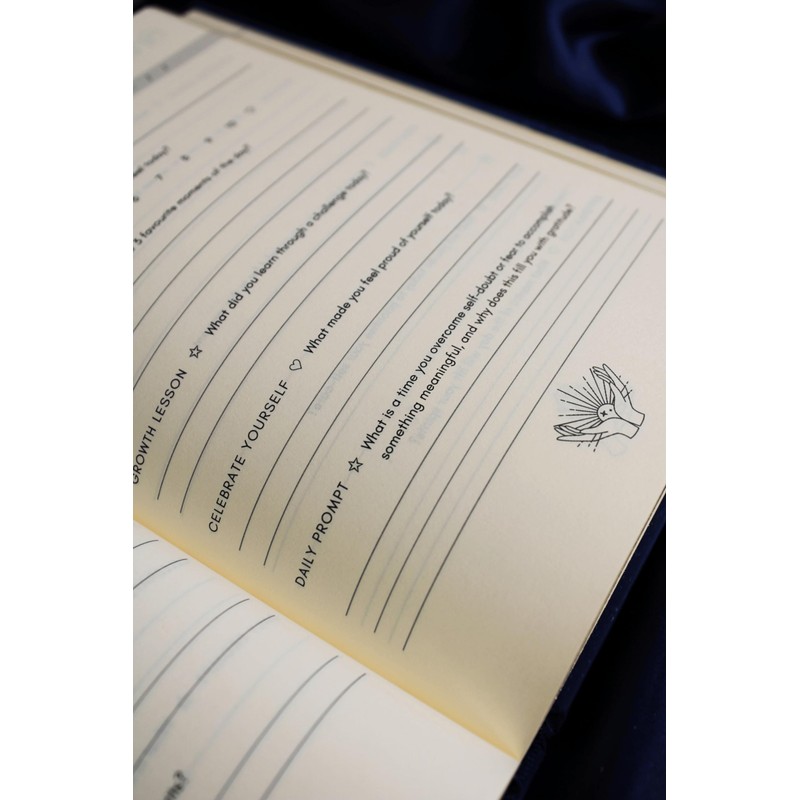 eel today?
6 7 8 9 10
5 favourite moments of the day?
GROWTH LESSON ☆ What did you learn through a challenge today?
CELEBRATE YOURSELF ♡ What made you feel proud of yourself today?
DAILY PROMPT ☆ What is a time you overcame self-doubt or fear to accomplish
something meaningful, and why does this fill you with gratitude?